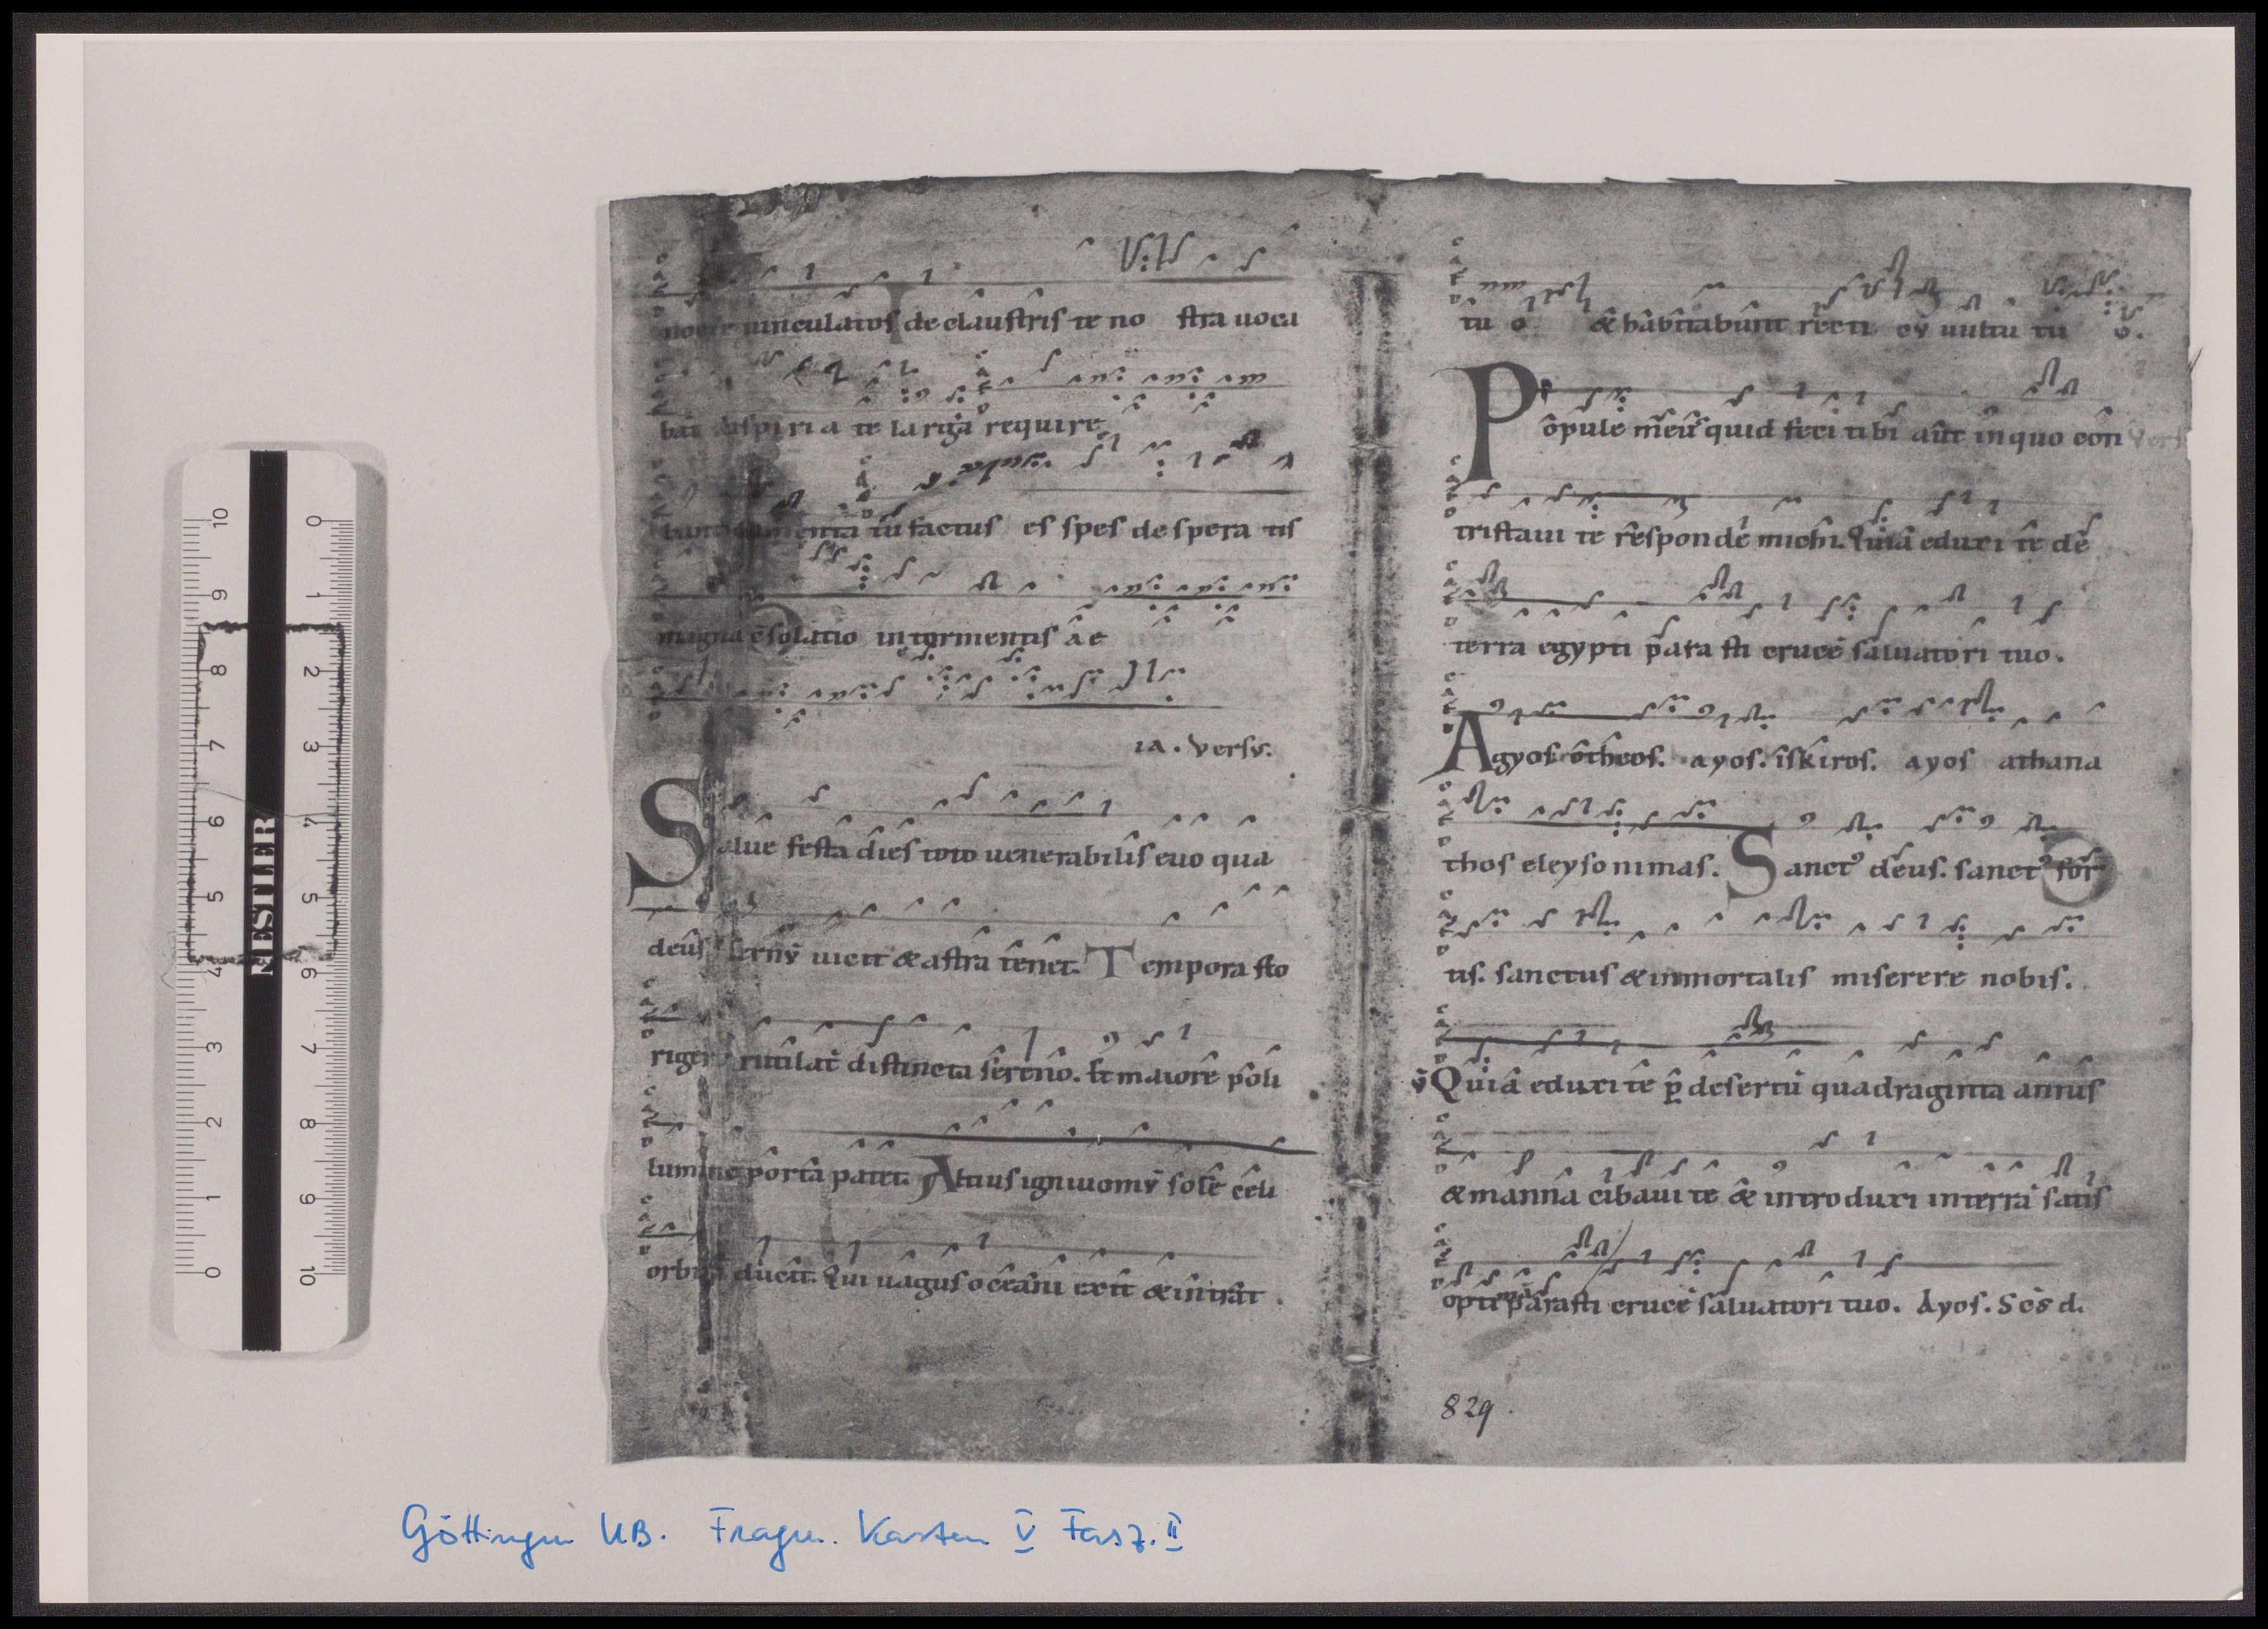 uinculatos de claustris te no stra uoca
bat suspiria te larga require
menta tu factus es spes despera tis
magna c̄solatio in tormentis a e
ia. versv̄.
Salue festa dies toto uenerabilis euo qua
deus fernv̄ uicit & astra tenet. Tempora flo
riger rutilat distincta sereno. Et maiore poli
lumine porta patet. Altius igniuomv̄ sole celi
orbita ducit. Qui uagus oceani exit & intrat.
tu o & habitabunt recti cv̄ uultu tu o.
Popule meus quid feci tibi aut in quo con
tristaui te responde michi. Quia eduxi te de
terra egypti parasti crucē saluatori tuo.
Agyos otheos. ayos. iskiros. ayos athana
thos eleyson imas. Sanctꝰ deus. sanctꝰ for
tis. sanctus & inmortalis miserere nobis.
v̄ Quia eduxi te p̱ desertū quadraginta annis
& manna cibaui te & introduxi in terrā satis
optimā parasti crucē saluatori tuo. Ayos. Scs̄ d.
829.
NESTLER
10 9 8 7 6 5 4 3 2 1 0
0 1 2 3 4 5 6 7 8 9 10
Göttingen UB. Fragm. Kasten V Fasz. II